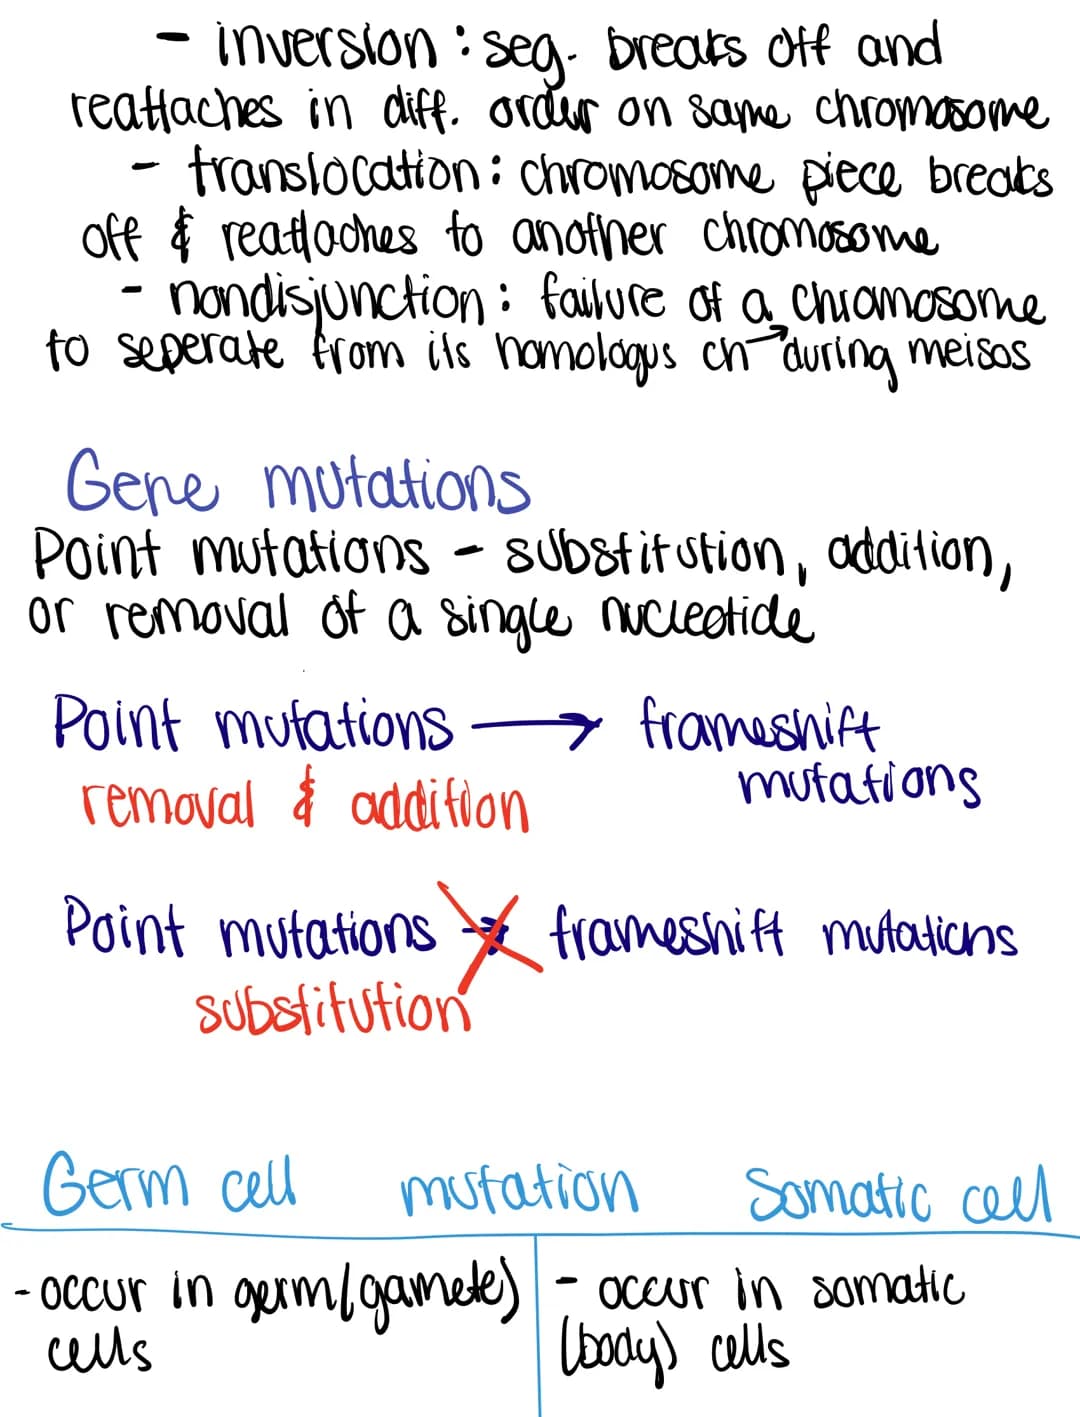 - inversion : seg. breaks off and
reattaches in diff. order on same chromosome
- translocation : chromosome piece breaks
off & reattaches to another chromosome
- nondisjunction : failure of a chromosome
to seperate from its homologus ch → during meisos
Gene mutations
Point mutations - substitution, addition,
or removal of a single nucleotide
Point mutations → frameshift
mutations
removal & addition
Point mutations → frameshift mutations
substitution
Germ cell mutation Somatic cell
- occur in germ (gamete)
cells
- occur in somatic
(body) cells